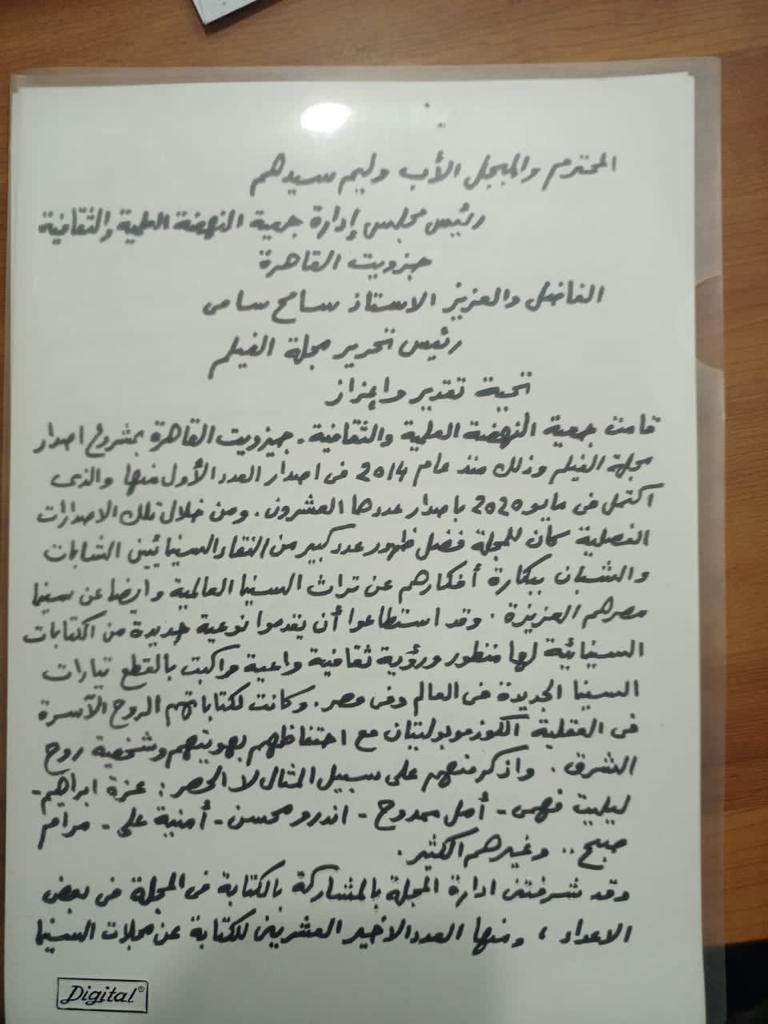 المحترم والمبجل الأب وليم سيدهم
رئيس مجلس إدارة جمعية النهضة العلمية والثقافية
جزويت القاهرة
الفاضل والعزيز الاستاذ سامح سامى
رئيس تحرير مجلة الفيلم
تحية تقدير وإعزاز
قامت جمعية النهضة العلمية والثقافية - جيزويت القاهرة بمشروع اصدار
مجلة الفيلم وذلك منذ عام 2014 فى اصدار العدد الأول منها والذى
اكتمل فى مايو 2020 باصدار عددها العشرون. ومن خلال تلك الاصدارات
الفصلية كان للمجلة فضل ظهور عدد كبير من النقاد السينمائيين الشابات
والشبان ببكارة أفكارهم عن تراث السينما العالمية وايضا عن سينما
مصرهم العزيزة. وقد استطاعوا أن يقدموا نوعية جديدة من الكتابات
السينمائية لها منظور ورؤية ثقافية واعية واكبت بالقطع تيارات
السينما الجديدة فى العالم وفى مصر. وكانت لكتاباتهم الروح الآسرة
فى العقلية الكوزموبوليتان مع احتفاظهم بهويتهم وشخصية روح
الشرق. واذكر منهم على سبيل المثال لا الحصر: عزة ابراهيم -
ليليت فهمى - أمل ممدوح - اندرو محسن - أمنية على - مرام
صبح.. وغيرهم الكثير.
وقد شرفتنى ادارة المجلة بالمشاركة بالكتابة فى المجلة فى بعض
الاعداد، ومنها العدد الاخير العشرين للكتابة عن مجلات السينما
Digital